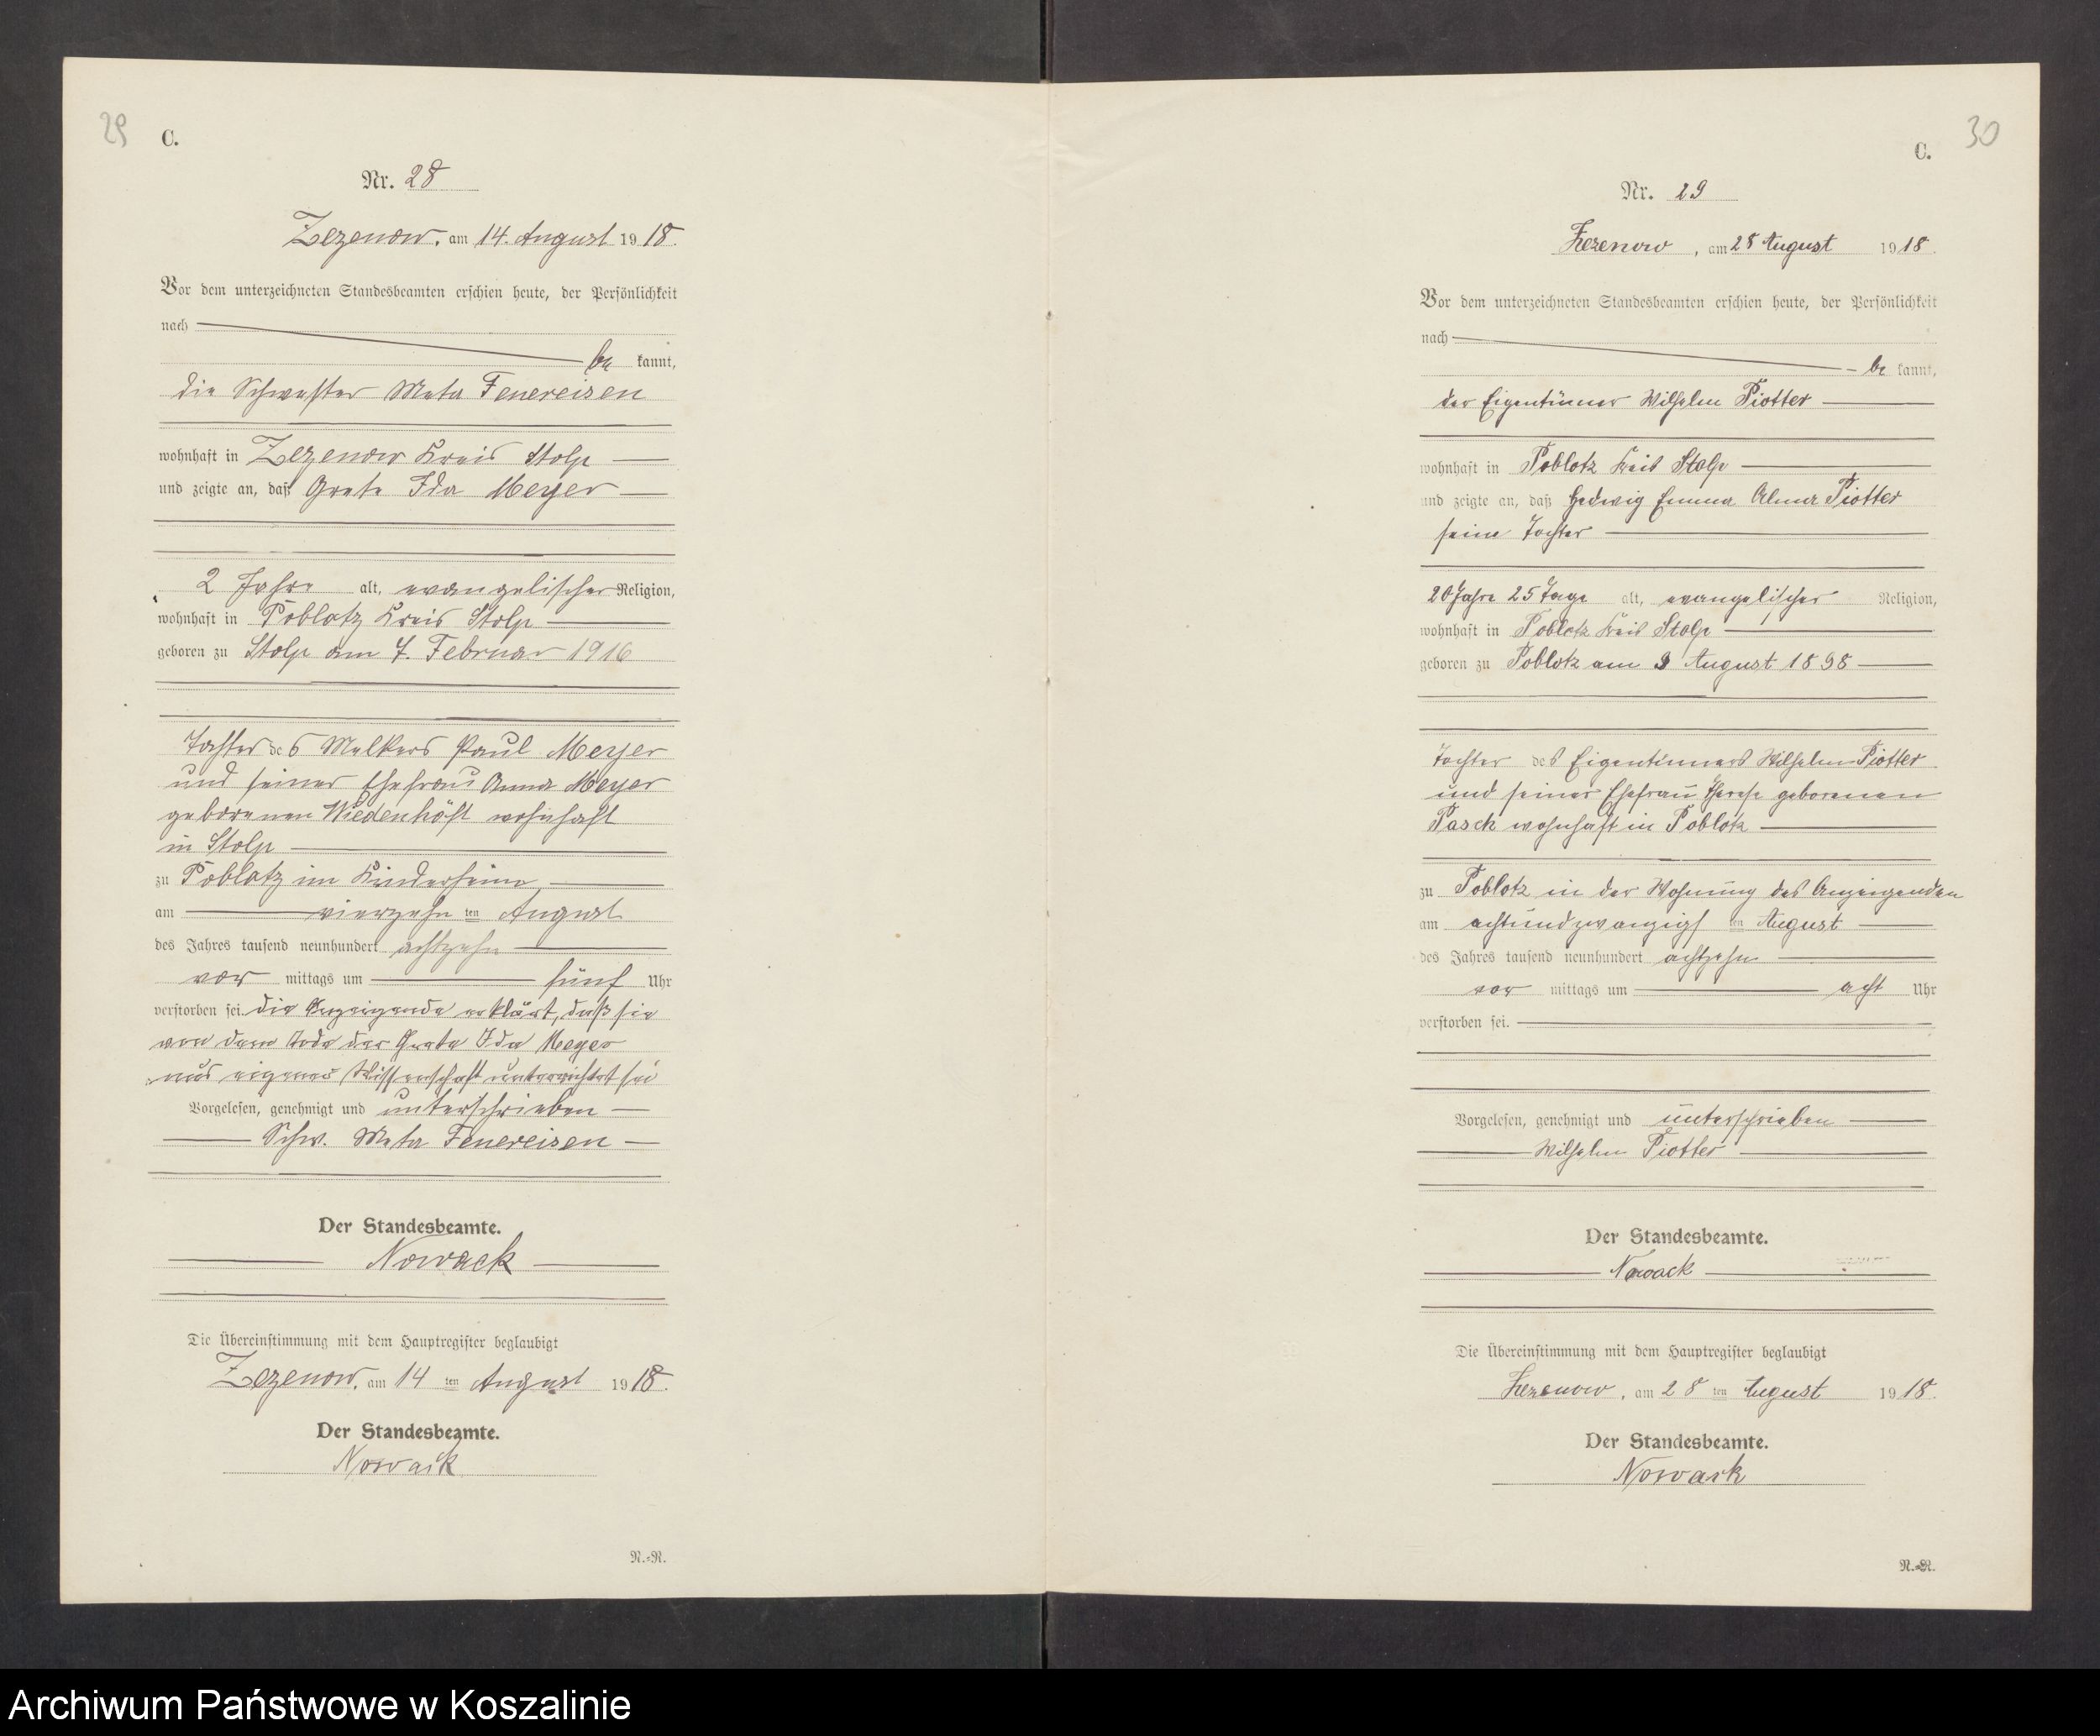 29
C.
Nr. 28
Zezenow, am 14. August 1918.
Vor dem unterzeichneten Standesbeamten erschien heute, der Persönlichkeit
nach
be kannt,
die Schwester Meta Feuereisen
wohnhaft in Zezenow Kreis Stolp
und zeigte an, daß Grete Ida Meyer
2 Jahre alt, evangelischer Religion,
wohnhaft in Poblotz Kreis Stolp
geboren zu Stolp am 7. Februar 1916
Tochter des Melkers Paul Meyer
und seiner Ehefrau Anna Meyer
geborenen Wiedenhöft wohnhaft
in Stolp
zu Poblotz im Kinderheime,
am vierzehn ten August
des Jahres tausend neunhundert achtzehn
vor mittags um fünf Uhr
verstorben sei. Die Anzeigende erklärt, daß sie
von dem Tode der Grete Ida Meyer
aus eigener Wissenschaft unterrichtet sei
Vorgelesen, genehmigt und unterschrieben
Schw. Meta Feuereisen
Der Standesbeamte.
Nowack
Die Übereinstimmung mit dem Hauptregister beglaubigt
Zezenow, am 14 ten August 1918.
Der Standesbeamte.
Nowack
N.=R.
30
C.
Nr. 29
Zezenow, am 28 August 1918.
Vor dem unterzeichneten Standesbeamten erschien heute, der Persönlichkeit
nach
be kannt,
der Eigentümer Wilhelm Piotter
wohnhaft in Poblotz Kreis Stolp
und zeigte an, daß Hedwig Emma Alma Piotter
seine Tochter
20 Jahre 25 Tage alt, evangelischer Religion,
wohnhaft in Poblotz Kreis Stolp
geboren zu Poblotz am 3 August 1898
Tochter des Eigentümers Wilhelm Piotter
und seiner Ehefrau Therese geborenen
Pasch wohnhaft in Poblotz
zu Poblotz in der Wohnung des Anzeigenden
am achtundzwanzigs ten August
des Jahres tausend neunhundert achtzehn
vor mittags um acht Uhr
verstorben sei.
Vorgelesen, genehmigt und unterschrieben
Wilhelm Piotter
Der Standesbeamte.
Nowack
Die Übereinstimmung mit dem Hauptregister beglaubigt
Zezenow, am 28 ten August 1918.
Der Standesbeamte.
Nowack
N.=R.
Archiwum Państwowe w Koszalinie